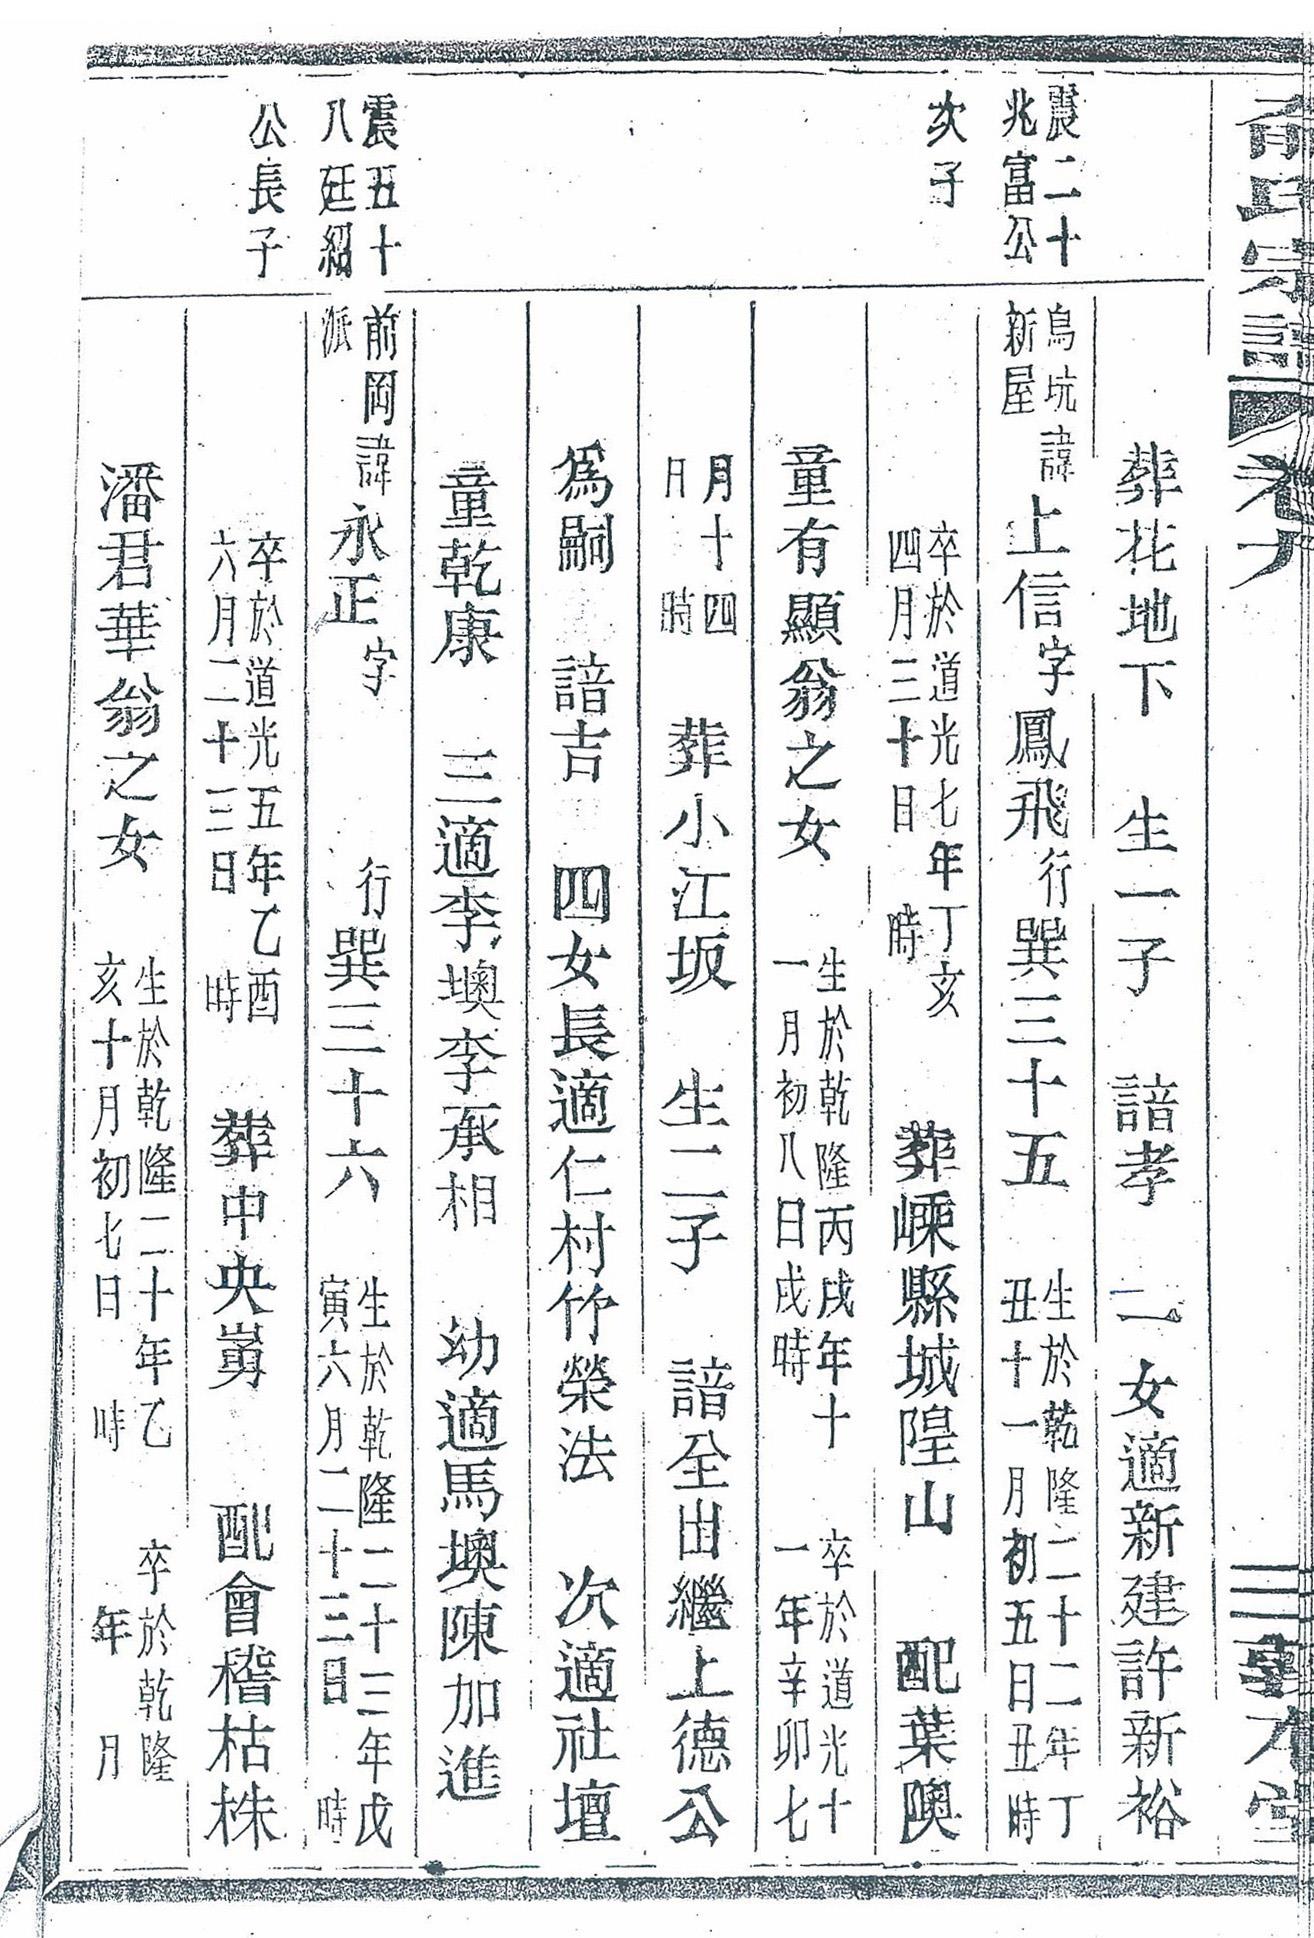 俞氏宗譜
卷九
葬花地下　生一子　諳孝　一女適新建許新裕
震二十
兆富公
次子
烏坑
新屋
諱上信字鳳飛行巽三十五　生於乾隆二十二年丁
丑十一月初五日丑時
卒於道光七年丁亥
四月三十日　時
葬嵊縣城隍山　配葉隩
童有顯翁之女　生於乾隆丙戌年十
一月初八日戌時
卒於道光十
一年辛卯七
月十四
日　時
葬小江坂　生二子　諳全出繼上德公
為嗣　諳吉　四女長適仁村竹榮法　次適社壇
童乾康　三適李墺李承相　幼適馬墺陳加進
震五十
八廷紹
公長子
前岡
派
諱永正字　行巽三十六　生於乾隆二十三年戊
寅六月二十三日　時
卒於道光五年乙酉
六月二十三日　時
葬中央　配會稽枯株
潘君華翁之女　生於乾隆二十年乙
亥十月初七日　時
卒於乾隆
年　月